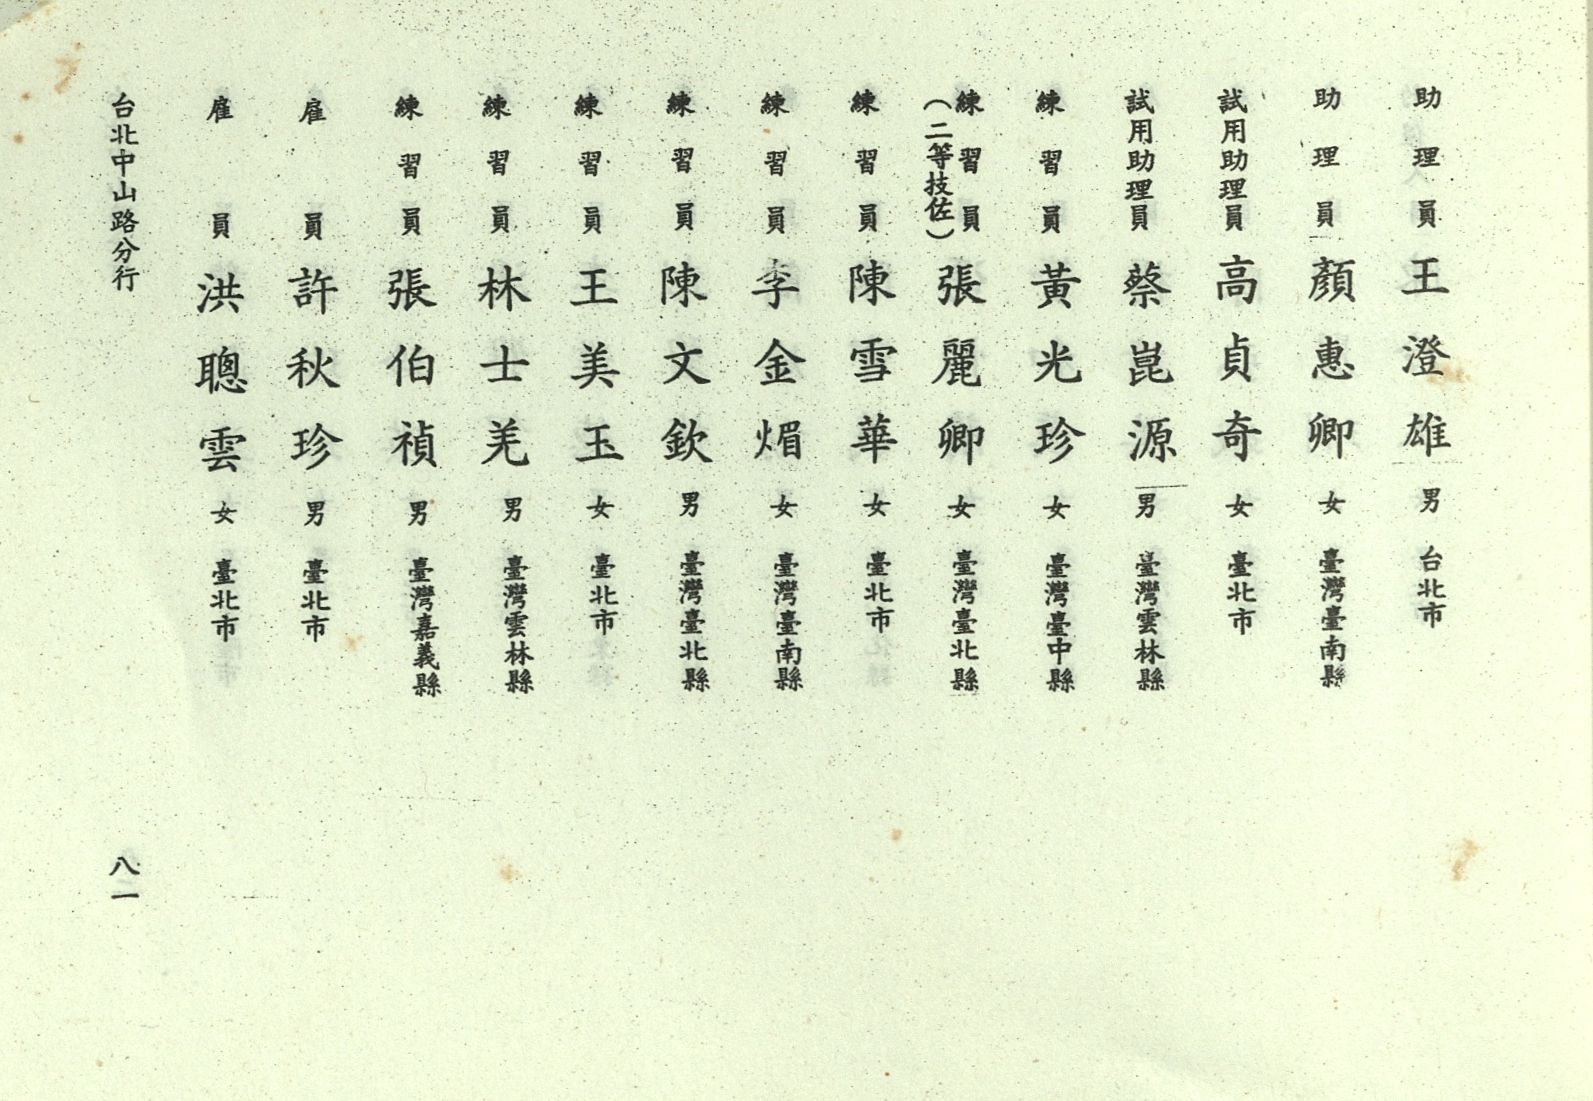 助理員 王澄雄 男 台北市
助理員 顏惠卿 女 臺灣臺南縣
試用助理員 高貞奇 女 臺北市
試用助理員 蔡崑源 男 臺灣雲林縣
練習員 黃光珍 女 臺灣臺中縣
練習員 張麗卿 女 臺灣臺北縣
（二等技佐）
練習員 陳雪華 女 臺北市
練習員 李金煝 女 臺灣臺南縣
練習員 陳文欽 男 臺灣臺北縣
練習員 王美玉 女 臺北市
練習員 林士羌 男 臺灣雲林縣
練習員 張伯禎 男 臺灣嘉義縣
雇員 許秋珍 男 臺北市
雇員 洪聰雲 女 臺北市
台北中山路分行 八一